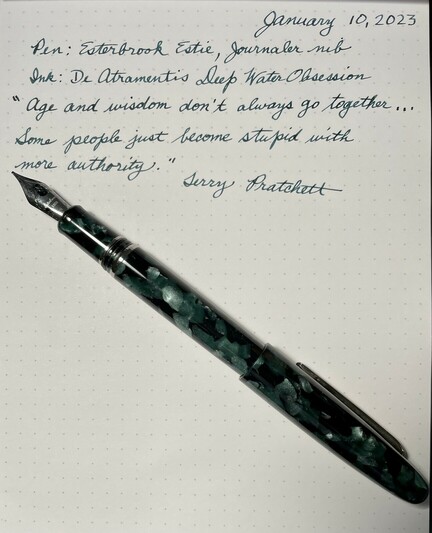 January 10, 2023
Pen: Esterbrook Estie, Journaler nib
Ink: De Atramentis Deep Water Obsession
"Age and wisdom don't always go together...
Some people just become stupid with
more authority."
Terry Pratchett